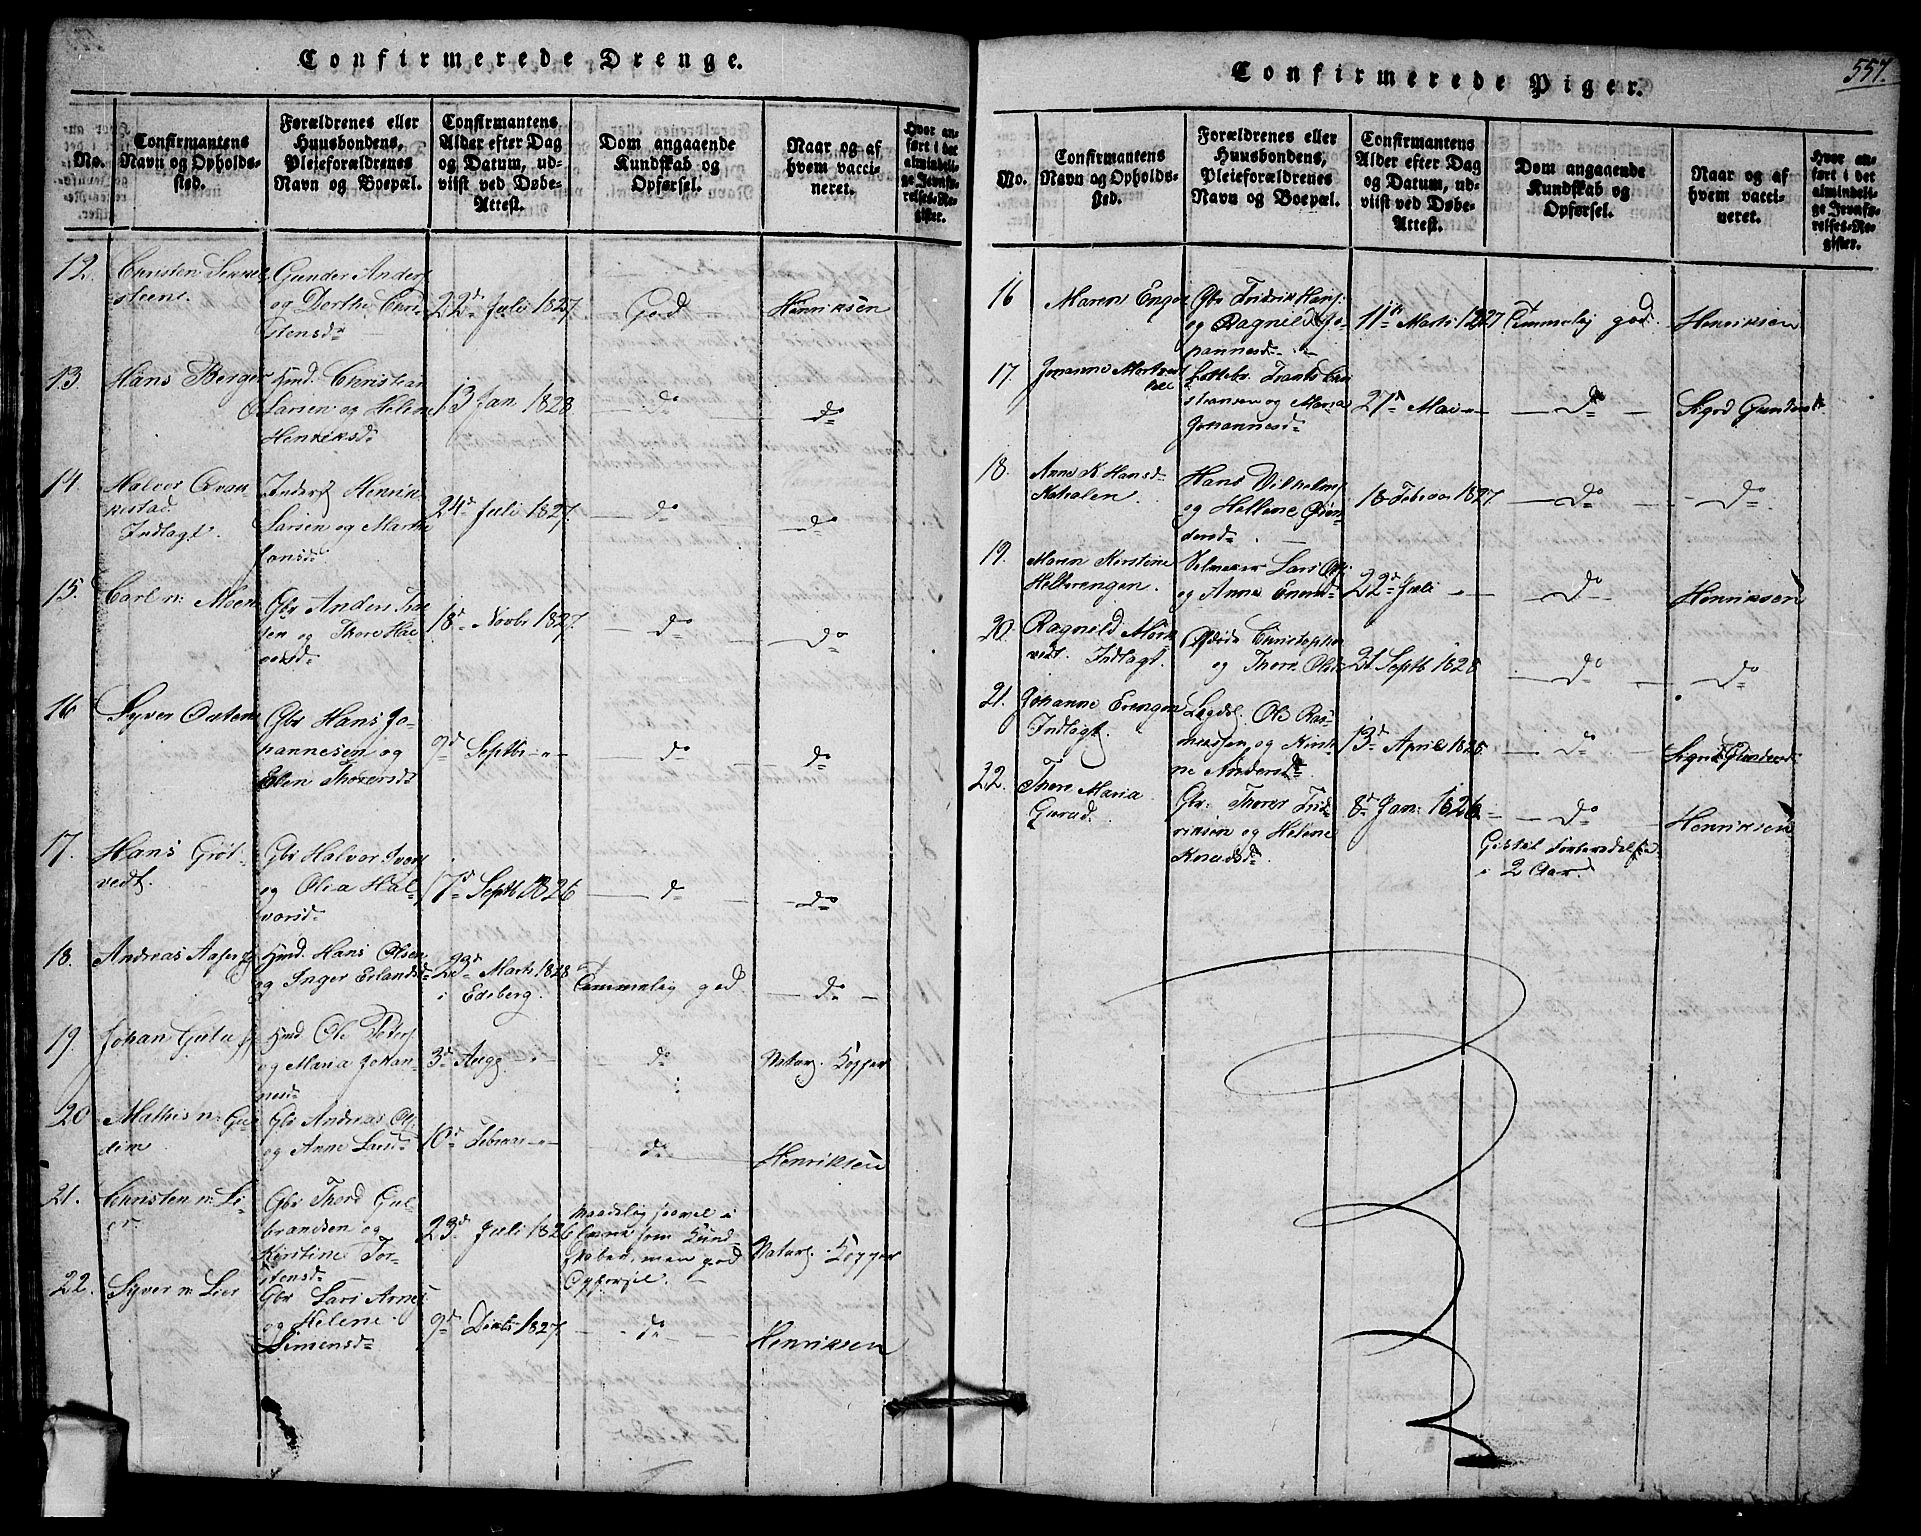 Confirmerede Drenge.
No.
Confirmantens
Navn og Opholds-
sted.
Forældrenes eller
Huusbondens,
Pleieforældrenes
Navn og Boepæl.
Confirmantens
Alder efter Dag
og Datum, ud-
viist ved Døbe-
Attest.
Dom angaaende
Kundskab og
Opførsel.
Naar og af
hvem vacci-
neret.
Hvor an-
ført i det
almindeli-
ge Jevnfø-
relses-Re-
gister.
12.
Christen
steens.
Gunder Anders
og Dorthe Chri-
stensd
22d Juli 1827.
God
Henriksen
13.
Hans Berger
Hmd. Christian
Larsen og Helene
Henriksd
13 Jan. 1828.
do
do
14.
Halvor
Indlagt.
Inders Henrik
Larsen og Marthe
Jansd
24d Juli 1827.
do
do
15.
Carl n. Moen
Gbr Anders
sen og Thore Hal-
vorsd
18d Novbr 1827.
do
do
16
Syver
Gbr Hans Jo-
hannesen og
Thorersd
9d Septbr -"-
do
do
17.
Hans Grøt-
vedt.
Gbr Halvor Ivers
og Olia Hal-
vorsd
17d Septb 1826
do
do
18.
Andreas
Hmd. Hans Olsen
og Inger Erlandsd
23d Marts 1828
i Edsberg.
Temmelig god
do
19.
Johan
Hmd Ole Peters
og Maria Johan-
nesd
3d Augs. "
do
Naturl. Kopper
20
Mathis n.
Gbr Andreas Ols
og Anne Larsd
10d Februar -"-
do
Henriksen
21.
Christen n. Li-
er.
Gbr Thord Gul
brandsen og
Kirstine Tor-
stensd
23d Juli 1826
Maadelig saavel i
Læsning som Kund-
skaber, men god
Opførsel.
Naturl. Kopper
22.
Syver n. Lier
Gbr Lars Arnes
og Helene
Simensd
9d Decbr 1827.
do
Henriksen
Confirmerede Piger.
557.
No.
Confirmantens
Navn og Opholds-
sted.
Forældrenes eller
Huusbondens,
Pleieforældrenes
Navn og Boepæl.
Confirmantens
Alder efter Dag
og Datum, ud-
viist ved Døbe-
Attest.
Dom angaaende
Kundskab og
Opførsel.
Naar og af
hvem vacci-
neret.
Hvor an-
ført i det
almindeli-
ge Jevnfø-
relses-Re-
gister.
16
Maren Enger
Gbr Fridrik Hans
og Ragnild Jo-
hannesd
11te Marts 1827
Temmelig god.
Henriksen
17.
Johanne
Frants Chri
stiansen og Maria
Johannesd
27d Mai -"-
do
Sigrd Gundersd
18.
Anne K Hansd
Hans Vilhelms
og Hellene Gun-
dersd
18 Februar 1827
do
do.
19.
Maren Kirstine
Lars Ols
og Anne
22d Juli "
do
Henriksen
20.
Ragnild Mørk
vedt. Indlagt.
Christopher
og Thore Olsd
21 Septb 1828
do
do
21.
Johanne Erengen
Indlagt.
Lægdsl. Ole Ras-
mussen og Kirsti-
ne Andersd
13d April 1828.
do
Sigrd Gundersd
22.
Thore Maria
Gbr. Thorer Frid
riksen og Helene
Knudsd.
8d Jan: 1826
do
Gistet Forberedelse
i 2 Aar.
Henriksen